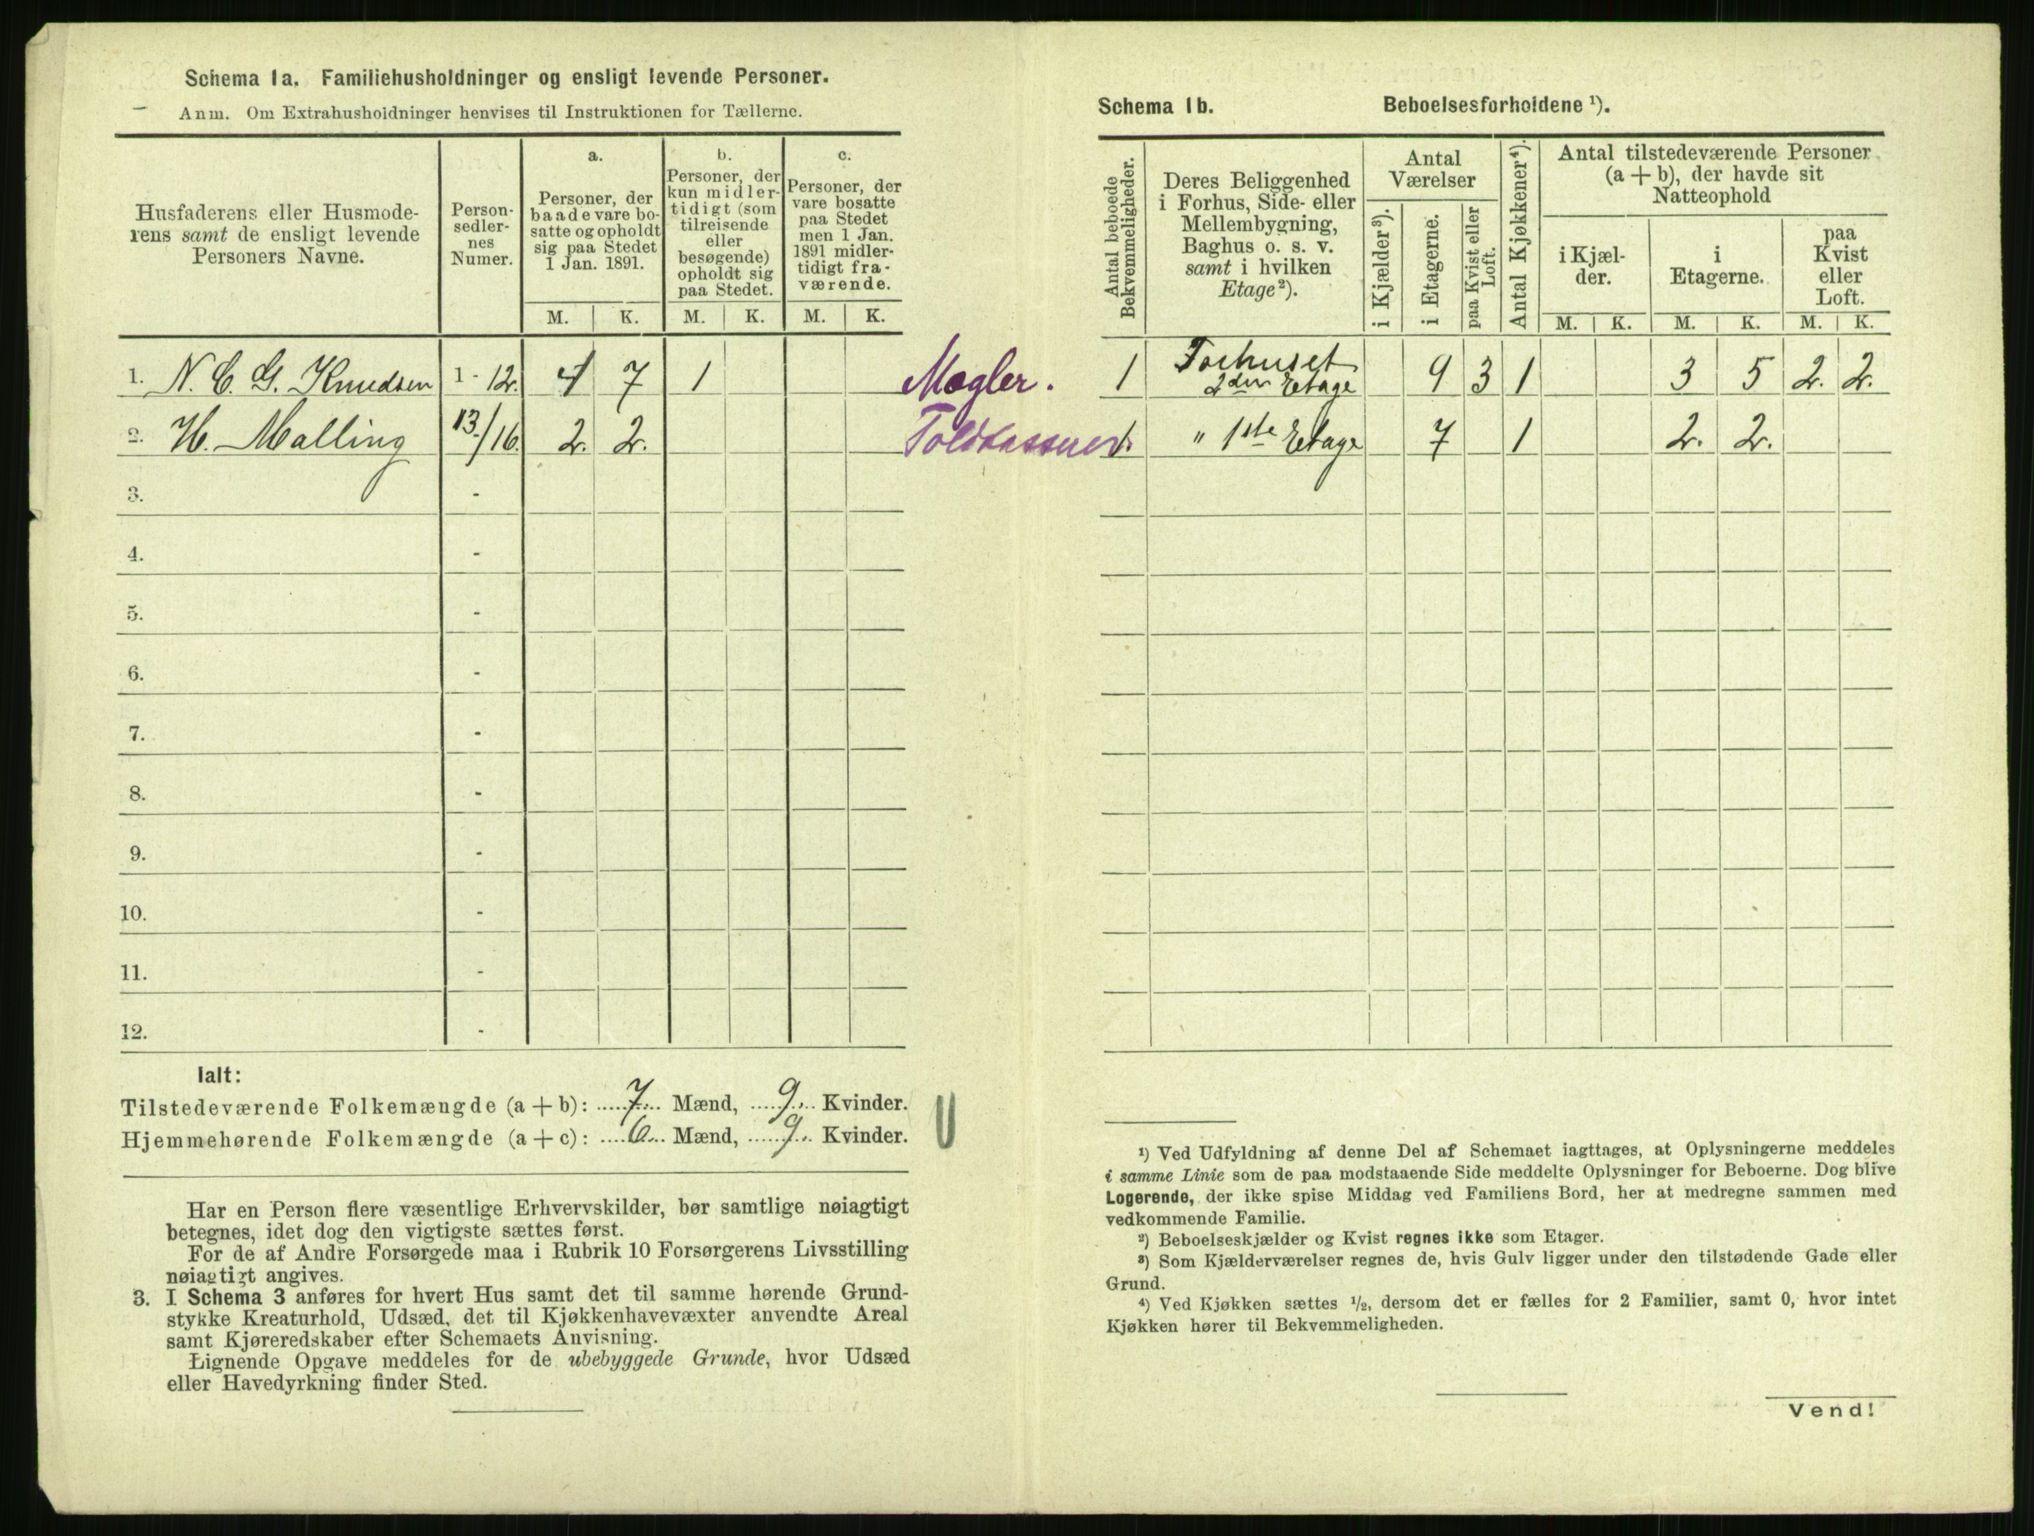 Schema 1a. Familiehusholdninger og ensligt levende Personer.
Anm. Om Extrahusholdninger henvises til Instruktionen for Tællerne.
Husfaderens eller Husmode-
rens samt de ensligt levende
Personers Navne.
Person-
sedler-
nes
Numer.
a.
Personer, der
baade vare bo-
satte og opholdt
sig paa Stedet
1 Jan. 1891.
b.
Personer, der
kun midler-
tidigt (som
tilreisende
eller
besøgende)
opholdt sig
paa Stedet.
c.
Personer, der
vare bosatte
paa Stedet
men 1 Jan.
1891 midler-
tidigt fra-
værende.
M. K. M. K. M. K.
1. N. C. G. Knudsen 1 - 12. 4 7 1 Mægler.
2. H. Malling 13/16. 2. 2. Toldkasserer
3. -
4. -
5. -
6. -
7. -
8. -
9. -
10. -
11. -
12. -
Ialt:
Tilstedeværende Folkemængde (a + b): 7 Mænd, 9 Kvinder.
Hjemmehørende Folkemængde (a + c): 6 Mænd, 9 Kvinder.
Har en Person flere væsentlige Erhvervskilder, bør samtlige nøiagtigt
betegnes, idet dog den vigtigste sættes først.
For de af Andre Forsørgede maa i Rubrik 10 Forsørgerens Livsstilling
nøiagtigt angives.
3. I Schema 3 anføres for hvert Hus samt det til samme hørende Grund-
stykke Kreaturhold, Udsæd, det til Kjøkkenhavevæxter anvendte Areal
samt Kjøreredskaber efter Schemaets Anvisning.
Lignende Opgave meddeles for de ubebyggede Grunde, hvor Udsæd
eller Havedyrkning finder Sted.
Schema 1b. Beboelsesforholdene ¹).
Antal beboede
Bekvemmeligheder.
Deres Beliggenhed
i Forhus, Side- eller
Mellembygning,
Baghus o. s. v.
samt i hvilken
Etage²).
Antal
Værelser
i Kjælder³).
i Etagerne.
paa Kvist eller
Loft.
Antal Kjøkkener⁴).
Antal tilstedeværende Personer
(a + b), der havde sit
Natteophold
i Kjæl-
der.
i
Etagerne.
paa
Kvist
eller
Loft.
M. K. M. K. M. K.
1 Forhuset
2den Etage 9 3 1 3 5 2. 2.
1. " 1ste Etage 7 1 2. 2.
¹) Ved Udfyldning af denne Del af Schemaet iagttages, at Oplysningerne meddeles
i samme Linie som de paa modstaaende Side meddelte Oplysninger for Beboerne. Dog blive
Logerende, der ikke spise Middag ved Familiens Bord, her at medregne sammen med
vedkommende Familie.
²) Beboelseskjælder og Kvist regnes ikke som Etager.
³) Som Kjælderværelser regnes de, hvis Gulv ligger under den tilstødende Gade eller
Grund.
⁴) Ved Kjøkken sættes ½, dersom det er fælles for 2 Familier, samt 0, hvor intet
Kjøkken hører til Bekvemmeligheden.
Vend!